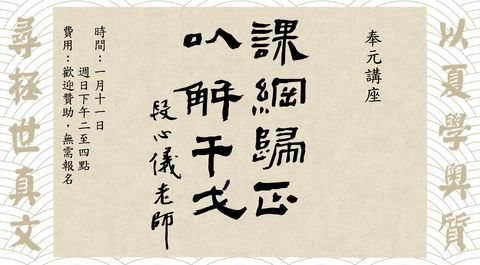 以夏學奧質
奉元講座
課綱歸正
㕥解干戈
段心儀老師
時間：一月十一日
週日下午二至四點
費用：歡迎贊助，無需報名
尋拯世真文